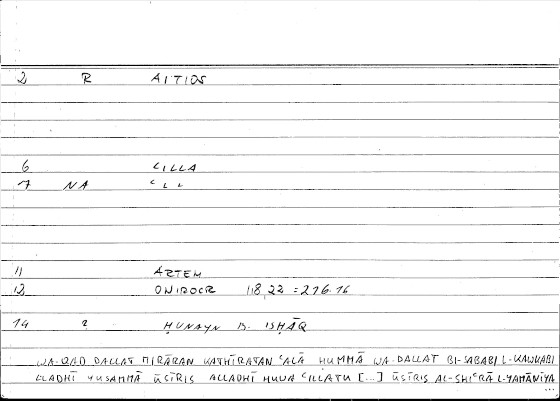 2 R AITIOS
6 ʿILLA
7 NA ʿLL
11 ARTEM
12 ONIROCR 118,22 = 216.16
14 2 ḤUNAYN B. ISḤĀQ
WA-QAD DALLAT MIRĀRAN KATHĪRATAN ʿALĀ ḤUMMĀ WA-DALLAT BI-SABABI L-KAWKABI
LLADHĪ YUSAMMĀ ŪSĪRIS ALLADHĪ HUWA ʿILLATU [...] ŪSĪRIS AL-SHIʿRĀ L-YAMĀNĪYA
...